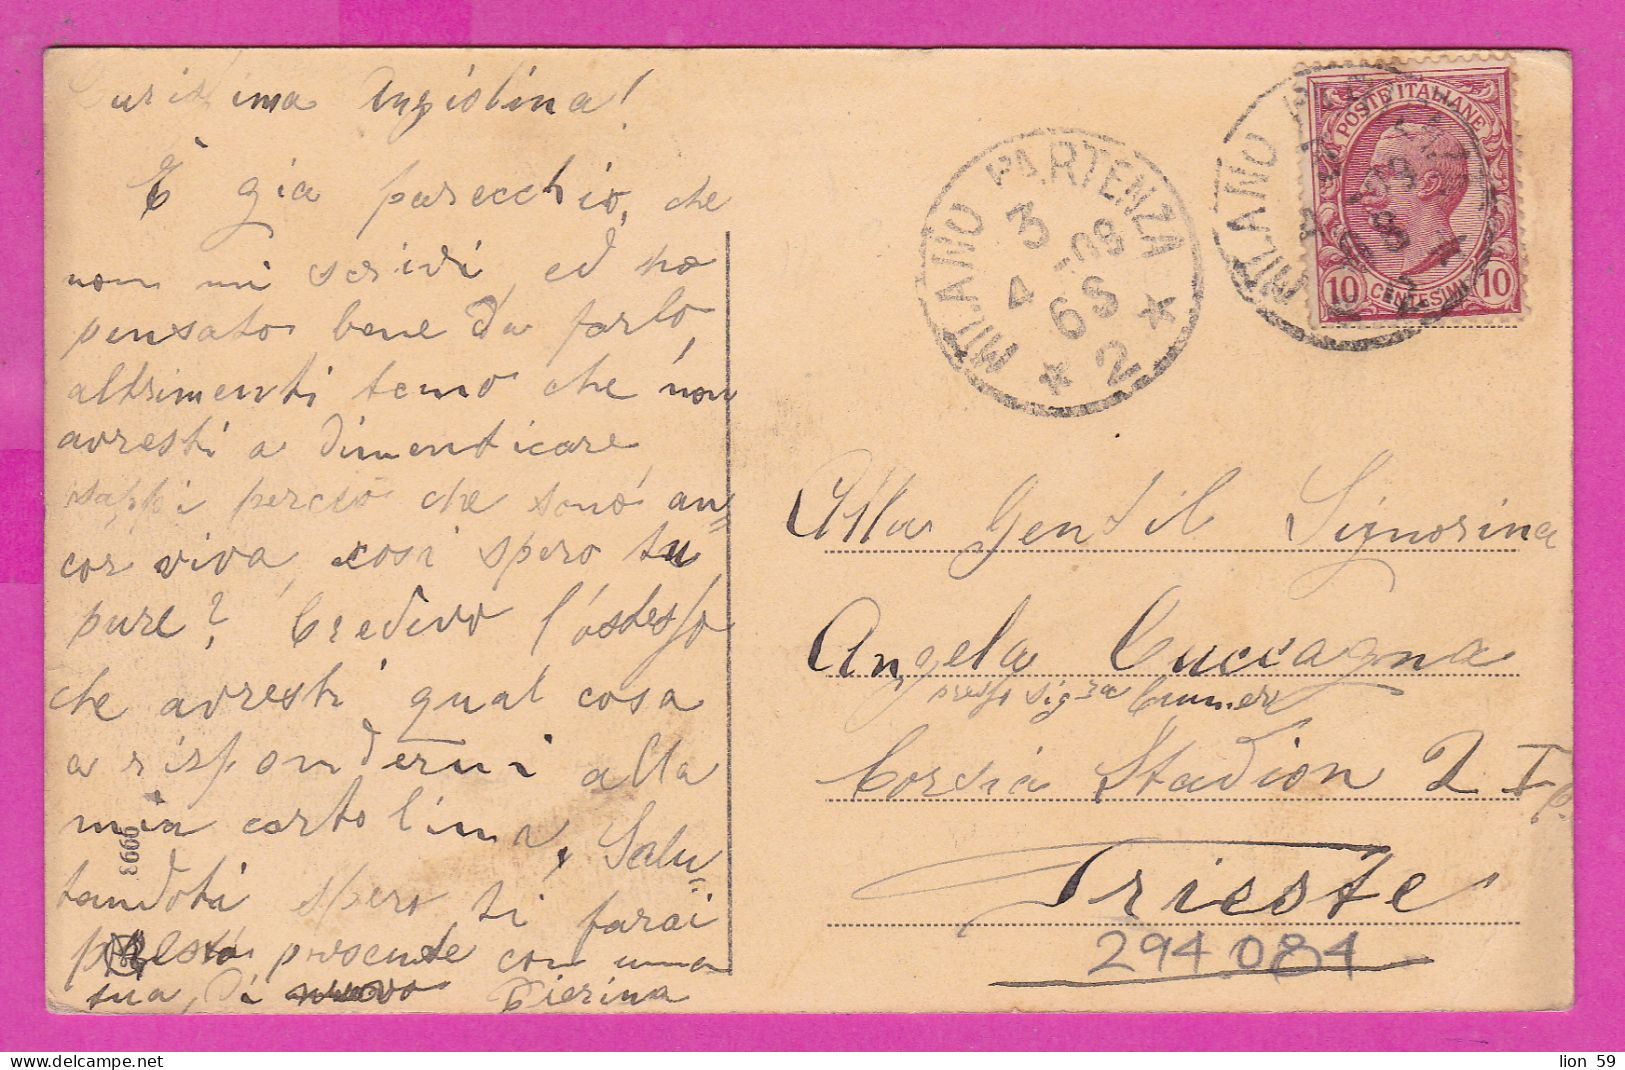 Carissima Angiolina!
È gia parecchio, che
non mi scrivi, ed ho
pensato bene da farlo,
altrimenti temo che non
avresti a dimenticare
sappi perciò che sono an=
cor viva, cosi spero tu
pure? Credevo l'ostesso
che avresti qual cosa
a rispondermi alla
mia cartolina, Salu=
tandoti spero ti farai
presto presente con una
tua, di nuovo Pierina
0993
MILANO PARTENZA
3
4 -09
6S
* 2 *
POSTE ITALIANE
10 CENTESIMI 10
MILANO
Alla Gentil Signorina
Angela Cuccagna
presso Sig.ra
Corsia Stadion 2 I p.
Trieste
294084
lion 59